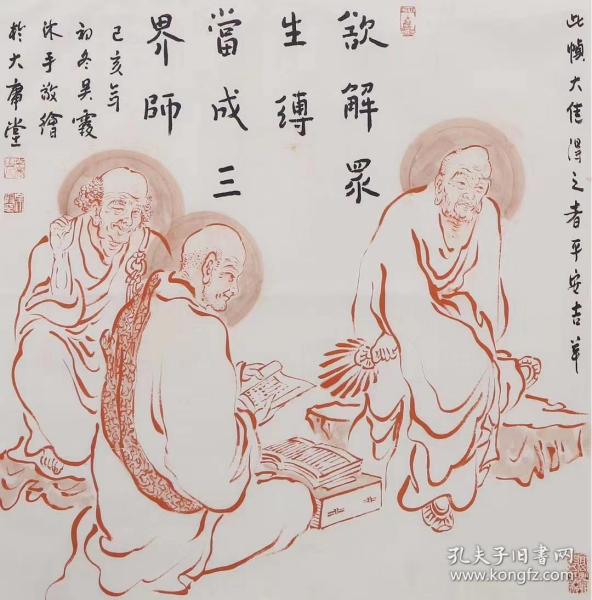 此幀大佳得之者平安吉羊
欲解眾
生縛
當成三
界師
己亥年
初冬吳霞
沐手敬繪
於大庸堂
孔夫子旧书网
www.kongfz.com